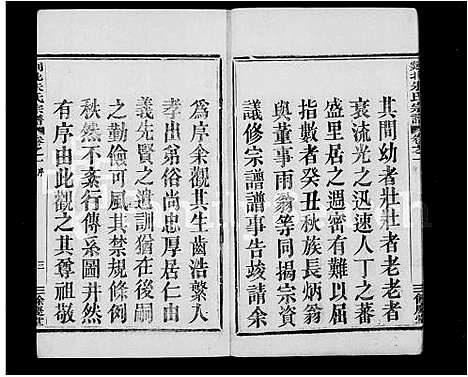 其間幼者壯壯者老老者
衰流光之迅速人丁之蕃
盛里居之變遷實有難以屈
指數者癸丑秋族長炳翁
與董事雨翁等同捐宗資
議修宗譜譜事告竣請余
爲序余觀其生齒浩繁入
孝出弟俗尚忠厚居仁由
義先賢之遺訓猶在後嗣
之勤儉可風其禁規條例
秩然不紊行傳系圖井然
有序由此觀之其尊祖敬
三